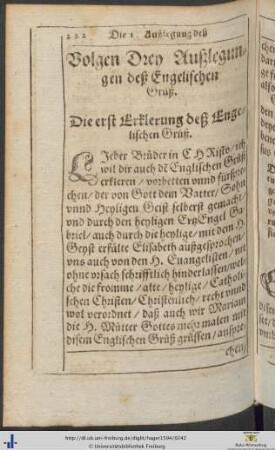 222 Die 1. Außlegung deß
Volgen Drey Außlegun-
gen deß Engelischen
Gruß.
Die erst Erklerung deß Enge-
lischen Gruß.
Lieber Brüder in CHRisto/ ich
wil dir auch dē Englischen Gruß
erkleren / vorbetten vnnd fürspre-
chen/ der von Gott dem Vatter/ Sohn
vnnd Heyligen Geist selberst gemacht/
vnd durch den heyligen ErtzEngel Ga-
briel/ auch durch die heylige/ mit dem H.
Geyst erfülte Elisabeth außgesprochen/
vns auch von den H. Euangelisten/ nit
ohne vrsach schrifftlich hinderlassen/ wel-
che die fromme / alte/ heylige/ Catholi-
schen Christen/ Christenlich/ recht vnnd
wol verordnet/ daß auch wir Mariam
die H. Mütter Gottes mehr malen mit
disem Englischen Gruß grüssen/ anspre-
chen/
http://dl.ub.uni-freiburg.de/diglit/hager1594/0242
© Universitätsbibliothek Freiburg
Baden-Württemberg